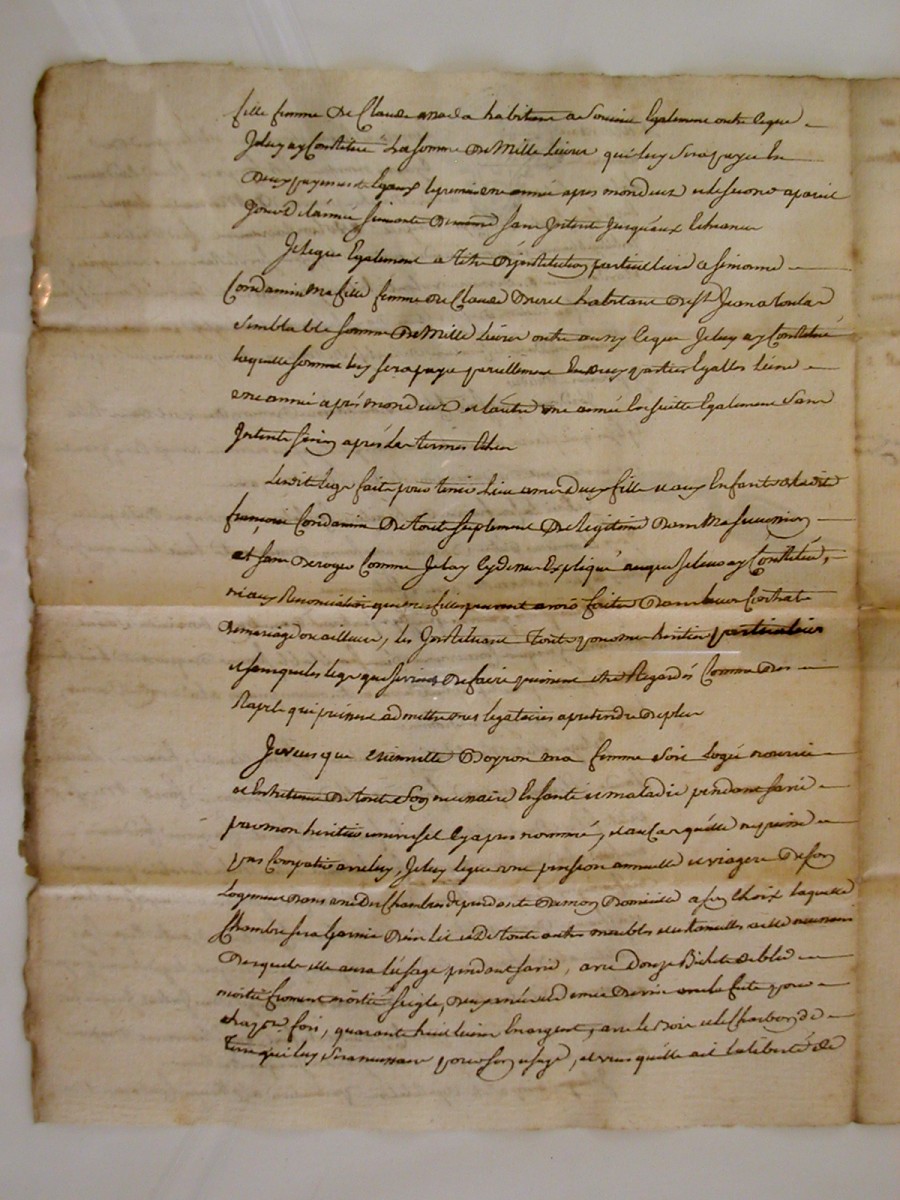 fille femme de Claude habitant a également outre ceque
Jeluy ay Constitué la somme de mille livres qui luy sera payée En
deux payements Egaux le premier une année apres mon deces et le second a pareil
Jour de l'année suivante sans Interet Jusqu'aux Echeances
Je legue Egalement a titre d'institution particulliere a simonne
Condamin Ma fille femme de Claude habitant de St Jean
semblable somme de Mille Livres outre ceque Jeluy ay Constitué
laquelle somme luy sera payé pareillement En deux parties Egalles l'une
une année aprés mon deces et l'autre une année En suitte Egalement sans
Interet sinon aprés les termes
Lesdits legs faits pour tenir Lieu a mes deux filles et aux Enfants de ladite
françoise Condamin de tout suplement de legitime dans Ma succession
et sans deroger Comme Jelay Cy dessus Expliqué Constitué,
ni aux Renonciations que mes filles peuvent avoir faites dans leur Contrat
de mariage ou ailleurs, les Instituant toutes pour mes heritieres particulieres
et sans que les legs que je viens de faire puissent etre Regardés Comme des
Rapels qui puissent admettre mes legataires a pretendre de plus
Je veus que Doyron ma femme soit Logée nourrie
et Entretenue de tout son necessaire En santé et maladie pendant sa vie
par mon heritier universel Cy apres nommé, et au Cas qu'elle ne puisse
pas Compatir avec luy, Je luy legue une pension annuelle et viagere de son
Logement dans une des Chambres dependante de mon Domicille a son Choix laquelle
Chambre sera Garnie d'un lit et de toute autres meubles et ustancilles a elle necessaire
desquels elle aura l'usage pendant sa vie, avec douze Bichets de bled
moitié froment moitié seigle, deux anées et demie de vin avec le fute pour
une fois, quarante huit livres En argent, avec le Bois et le Charbon de
terre qui luy sera necessaire pour son usage, et veus qu'elle ait la liberté de